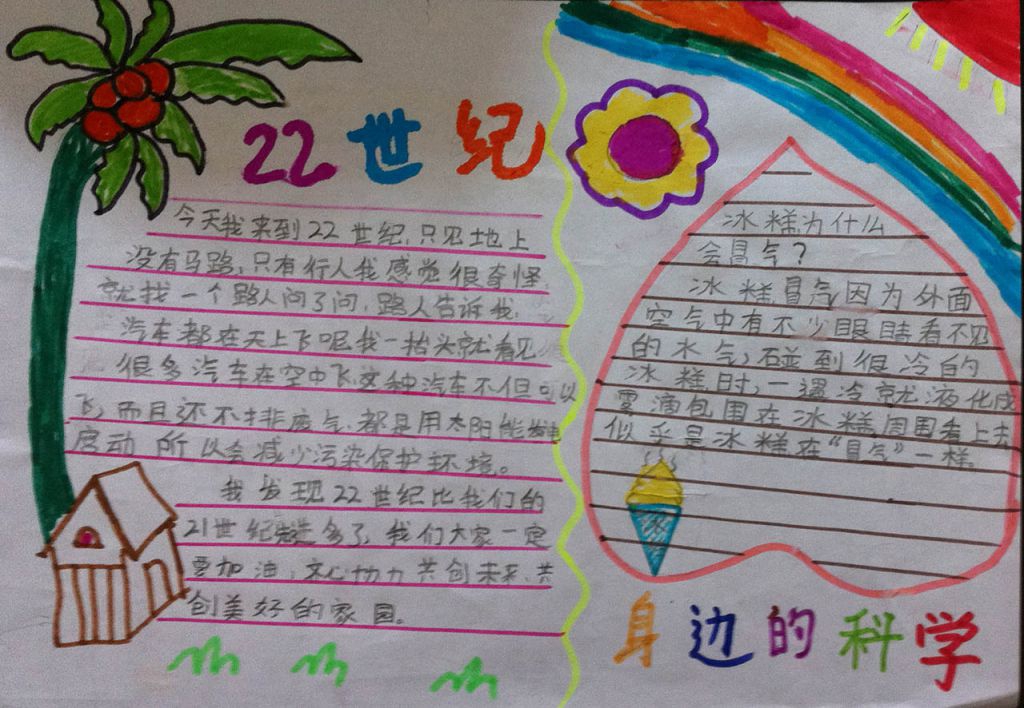 22世纪
今天我来到22世纪,只见地上
没有马路,只有行人我感觉很奇怪
就找一个路人问了问,路人告诉我:
汽车都在天上飞呢我一抬头就看见
很多汽车在空中飞这种汽车不但可以
飞,而且还不排废气,都是用太阳能发电
启动所以会减少污染保护环境。
我发现22世纪比我们的
21世纪先进多了,我们大家一定
要加油,文心协力共创未来,共
创美好的家园。
冰糕为什么
会冒气?
冰糕冒气因为外面
空气中有不少眼睛看不见
的水气,碰到很冷的
冰糕时,一遇冷就液化成
雾滴包围在冰糕周围看上去
似乎是冰糕在“冒气”一样。
身边的科学